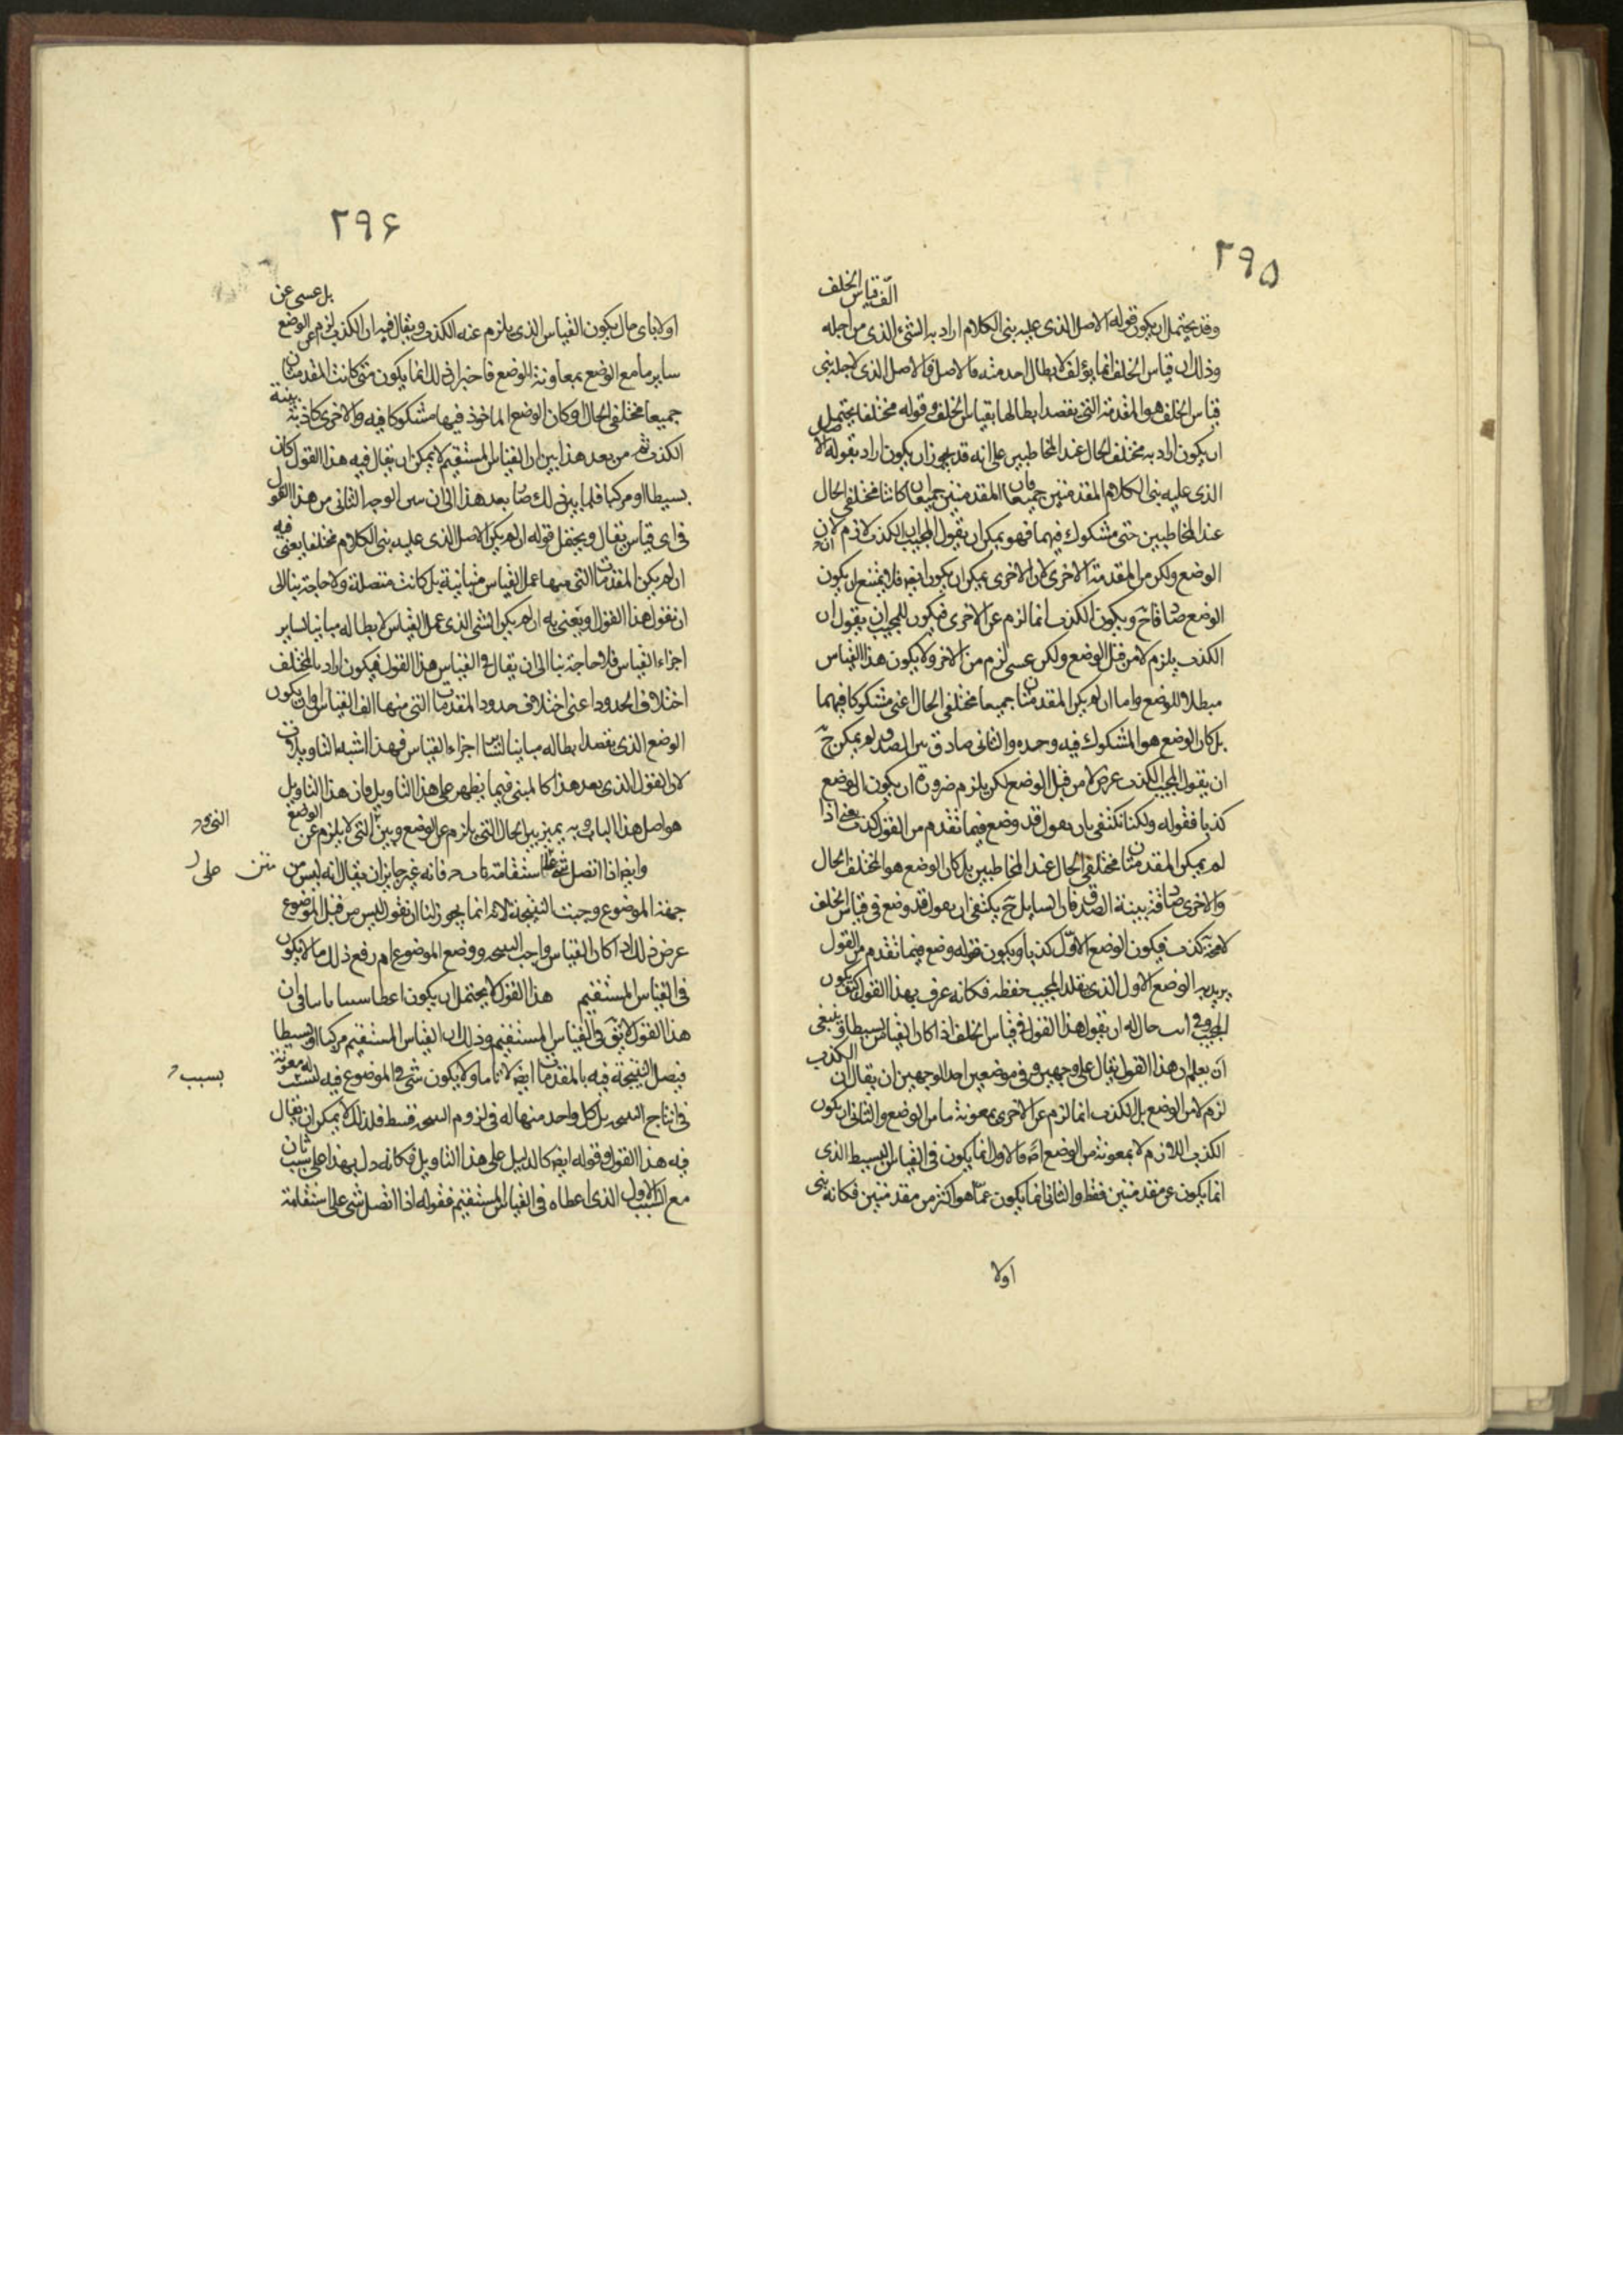 ٢٩٥
الف قياس الخلف
وقد يحتمل ان يكون قوله الاصل الذى عليه بنى الكلام اراد به الشىء الذى من اجله
وذلك ان قياس الخلف انما يؤلف لابطال احد مقدمته فالاصل الذى لاجله بنى
قياس الخلف هو المقدمة التى يقصد ابطالها بقياس الخلف وقوله مختلفا يحتمل
ان يكون اراد به مختلف الحال عند المخاطبين على انه قد يجوز ان يكون اراد بقوله الاصل
الذى عليه بنى الكلام المقدمتين جميعا فان المقدمتين جميعا ان كانتا مختلفى الحال
عند المخاطبين حتى مشكوك فيهما فهو يمكن ان يقول المجيب ان الكذب لازم لا من
الوضع ولكن من المقدمة الاخرى لان الاخرى يمكن ان يكون ايضا فلا يمتنع ان يكون
الوضع صادقا ح ويكون الكذب انما لزم عن الاخرى فيكون للمجيب ان يقول ان
الكذب يلزم لا من قبل الوضع ولكن عسى لزم من الاخر ولا يكون هذا القياس
مبطلا للوضع واما ان لم يكن المقدمتان جميعا مختلفى الحال اعنى مشكوكا فيهما
بل كان الوضع هو المشكوك فيه وحده والثانى صادق بين الصدق لم يمكن ح
ان يقول المجيب الكذب عرض لا من قبل الوضع لكن يلزم ضرورة ان يكون الوضع
كذبا فقوله ولكنا نكتفى بان نقول قد وضع فيما تقدم من القول كذب يعنى اذا
لم يكن المقدمتان مختلفى الحال عند المخاطبين بل كان الوضع هو المختلف الحال
والاخرى صادقة بينة الصدق فان السايل ح يكتفى ان يقول قد وضع فى قياس الخلف
كذب فيكون الوضع الاول كذبا ويكون قوله وضع فيما تقدم من القول
يريد به الوضع الاول الذى تقلد المجيب حفظه فكانه عرف بهذا القول متى يكون
المجيب فى حال له ان يقول هذا القول فى قياس الخلف اذا كان القياس بسيطا وينبغى
ان يعلم ان هذا القول يقال على وجهين وفى موضعين احد الوجهين ان يقال ان الكذب
لزم لا من الوضع بل الكذب انما لزم عن الاخرى بمعونة ما من الوضع والثانى ان يكون
الكذب اللازم لا بمعونة من الوضع فالاول انما يكون فى القياس البسيط الذى
انما يكون عن مقدمتين فقط والثانى انما يكون عما هو اكثر من مقدمتين فكانه بنى
اولا
٢٩۶
بل عسى عن
اولا باى مال يكون القياس الذى يلزم عنه الكذب ويقال فيه ان الكذب لزم عن الوضع
ساير ما مع الوضع بمعاونة الوضع فاخبر ان ذلك انما يكون متى كانت المقدمتان
جميعا مختلفى الحال او كان الوضع الماخوذ فيها مشكوكا فيه والاخرى كاذبة بينة
الكذب ثم من بعد هذا بين ان القياس المستقيم لا يمكن ان يقال فيه هذا القول كان
بسيطا او مركبا فلما بين ذلك صار بعد هذا الى ان بين الوجه الثانى من هذا القول
فى اى قياس يقال ويجعل قوله ان لم يكن الاصل الذى عليه بنى الكلام مختلفا يعنى فيه
ان لم يكن المقدمات التى منها عمل القياس متباينة بل كانت متصلة ولا حاجة بنا الى
ان نقول هذا القول ويعنى به ان لم يكن الشىء الذى عمل القياس لابطاله مباينا لساير
اجزاء القياس فلا حاجة بنا الى ان يقال فى القياس هذا القول فيكون اراد بالمختلف
اختلاف الحدود اعنى اختلاف حدود المقدمات التى منها الف القياس او ان يكون
الوضع الذى يقصد ابطاله مباينا لساير اجزاء القياس فهذا اشبه التاويلات
لان القول الذى بعد هذا كالمبنى فيما يظهر على هذا التاويل فان هذا التاويل
هو اصل هذا الباب وبه يميز بين الحال التى يلزم عن الوضع وبين التى لا يلزم عن الوضع
وايضا اذا اتصل شىء على استقامة فانه غير جايز ان يقال انه ليس من
جهة الموضوع وجبت النتيجة لانه انما يجوز لنا ان نقول ليس من قبل الموضوع
عرض ذلك اذا كان القياس واجب النتيجة ووضع الموضوع ام رفع ذلك ما لا يكون
فى القياس المستقيم هذا القول يحتمل ان يكون اعطا سببا ثانيا فى ان
هذا القول لا يق فى القياس المستقيم وذلك ان القياس المستقيم مركبا او بسيطا
فيصل النتيجة فيه بالمقدمات ايضا لا ولا يكون شى فى الموضوع فيه ليست له معونة
فى انتاج النتيجة بل كل واحد منها له فى لزوم النتيجة قسط فلذلك لا يمكن ان يقال
فيه هذا القول وقوله ايضا كالدليل على هذا التاويل فكانه دل بهذا على سبب ثان
مع السبب الاول الذى اعطاه فى القياس المستقيم فقوله اذا اتصل شى على استقامة
متن
على
بسبب